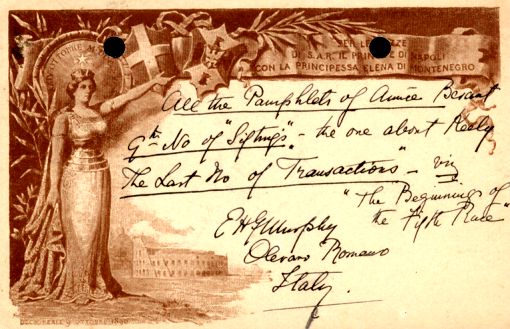 PER LE NOZZE
DI S.A.R. IL PRINCIPE DI NAPOLI
CON LA PRINCIPESSA ELENA DI MONTENEGRO
All the Pamphlets of Annie Besant
9th No of "Siftings" - the one about Keely
The Last No of Transactions - viz
"The Beginnings of
the Fifth Race"
E H G Murphy
Olevano Romano
Italy.